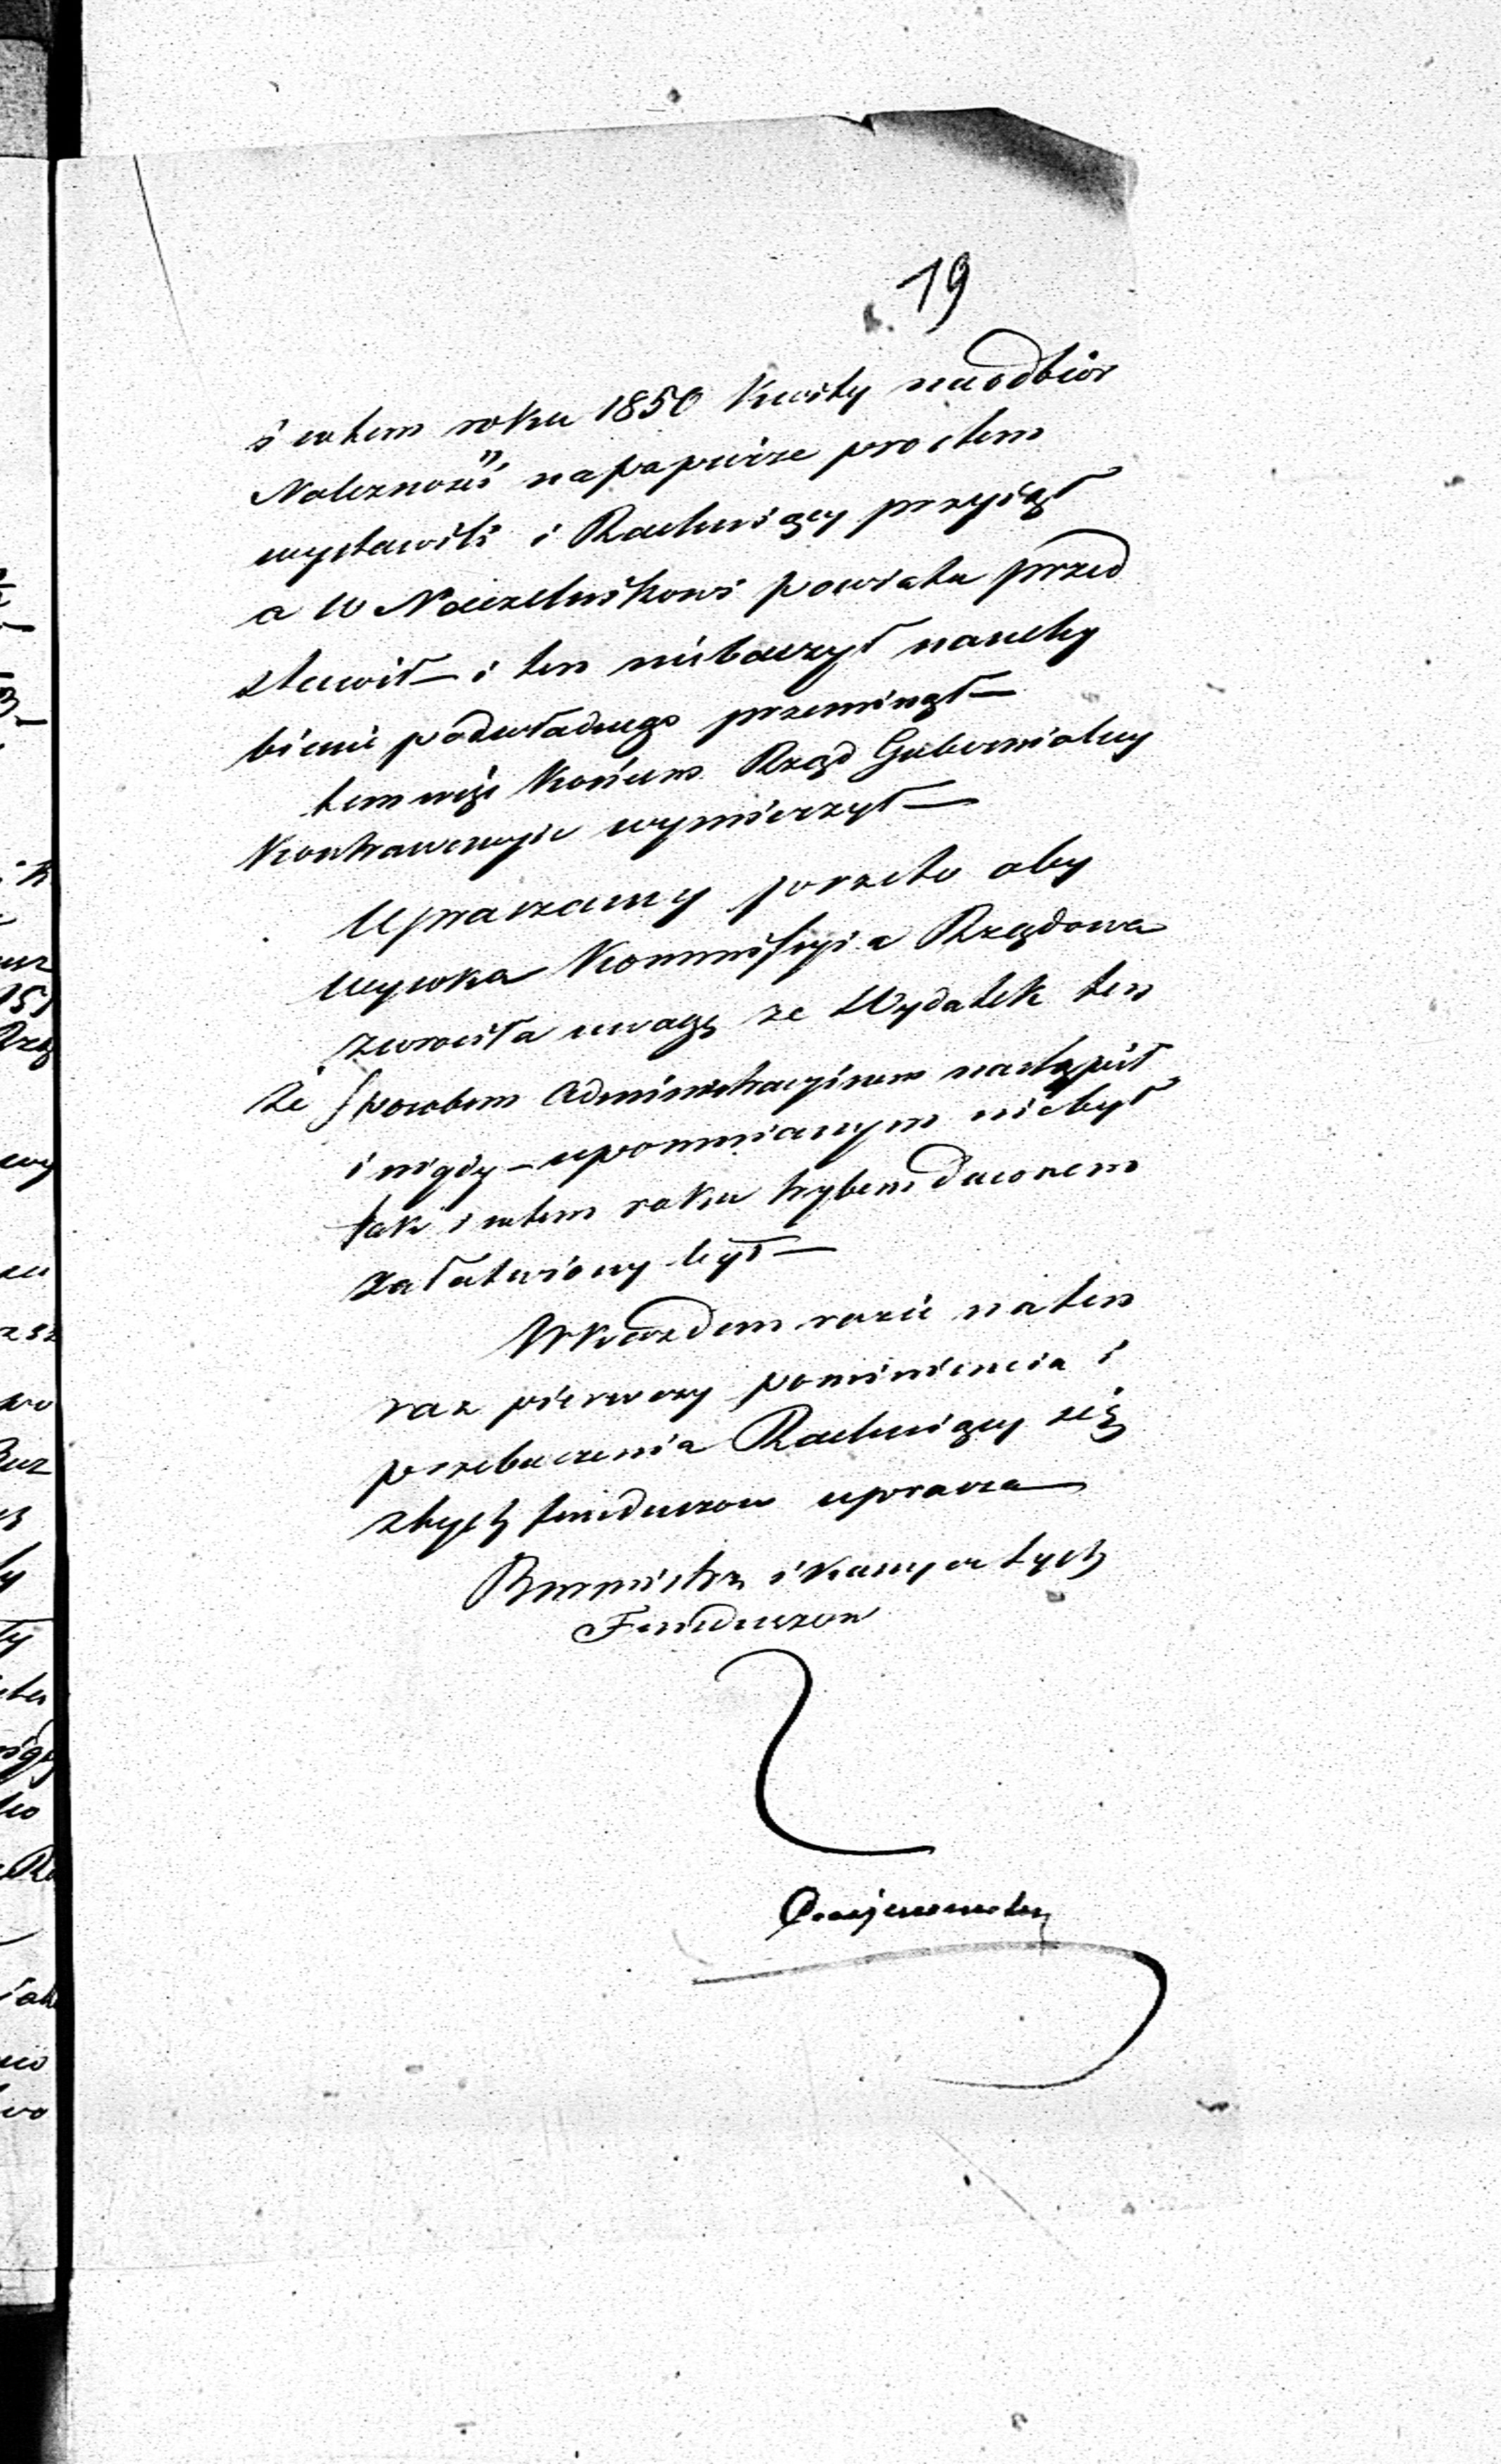 19
i wtem roku 1850 Kwity naodbiór
Należność napapierze prostem
wystawili i Rachuiący przyiął
a W Naczelnikowi powiatu przed
stawił — i ten niebaczył nauchy
bienie podwładnego przeminął —
temwięc Końcem Rząd Gubernialny
Kontrawencyie wymierzył —
Upraszamy przeto aby
Wysoka Kommissyia Rządowa
zwrociła uwagę ze Wydatek ten
że Sposobem Administracyinem nastąpił
i nigdy — upomnianym niebył
tak i wtem roku trybem dawnem
załatwiony był —
Wkazdem razie naten
raz pierwszy pominiencia i
przebaczenia Rachuiący się
ztych funduszow uprasza
Burmistrz i Kassyer tych
Funduszow